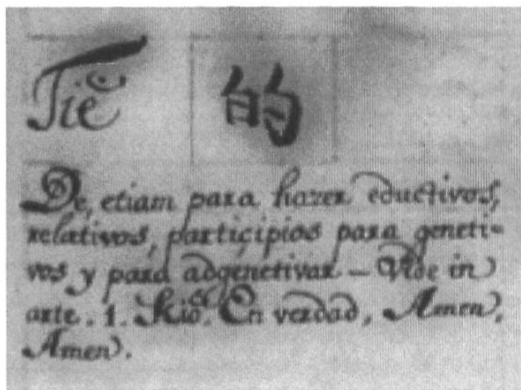 Tiě 的
De, etiam para hazer eductivos,
relativos, participios para geneti-
vos y para adgenetivar - Vide in
arte. 1. Kiǒ. En verdad, Amen,
Amen.